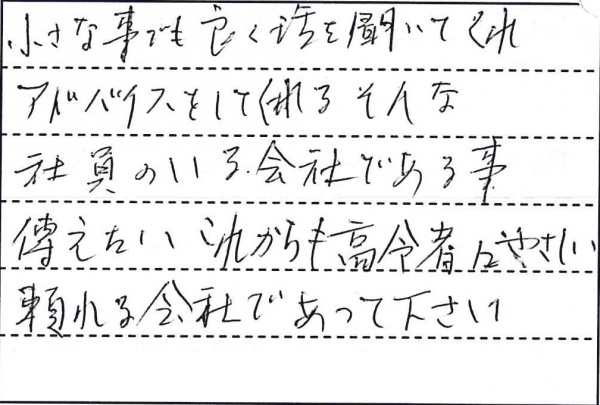 小さな事でも良く話を聞いてくれ
アドバイスをして下さるそんな
社員のいる会社である事
傳えたいこれからも高令者にやさしい
頼れる会社であって下さい